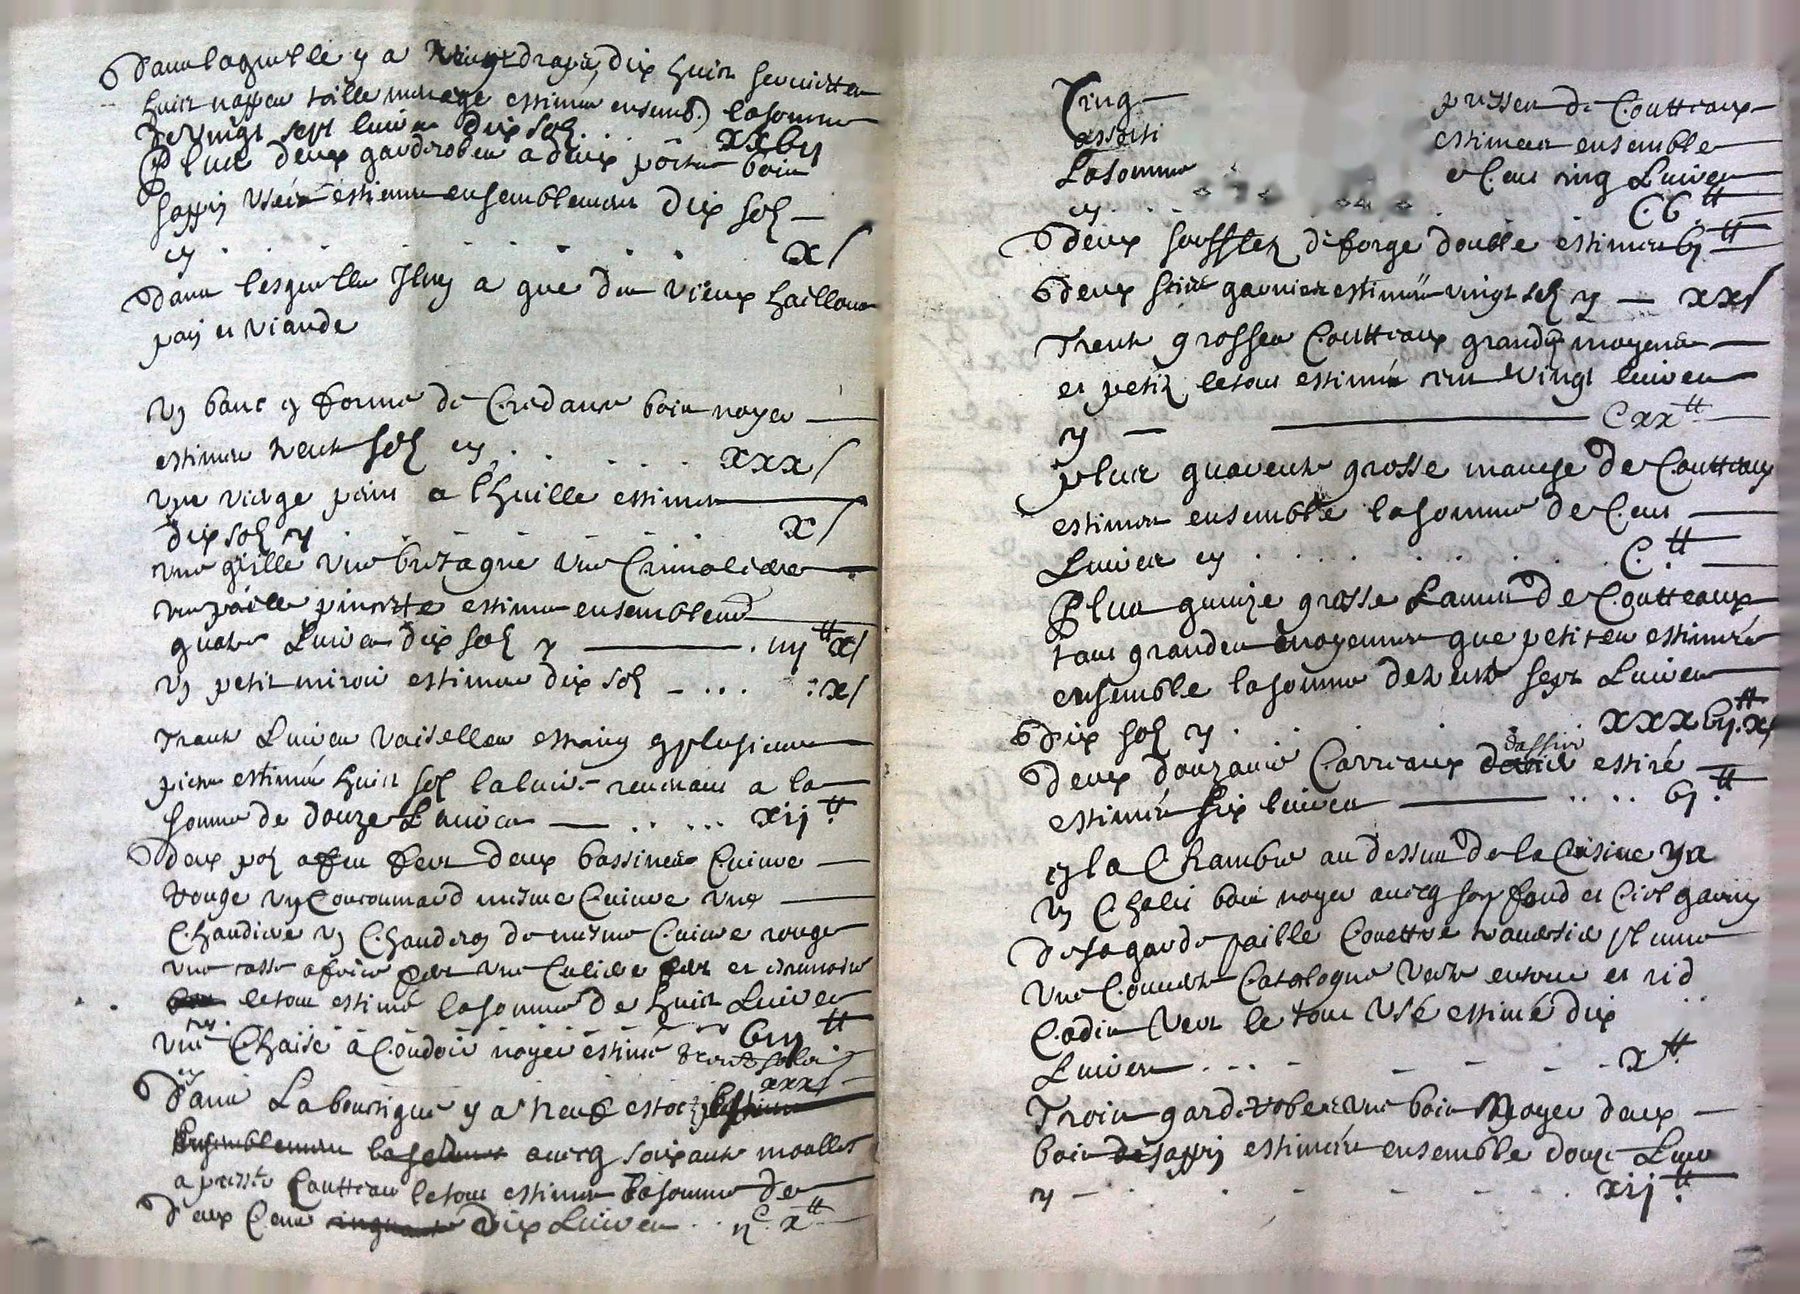 Dans laquelle y a vingt draps, dix huict serviettes
huict nappes toille menage estimés ensemb. la somme
de vingt sept livres dix sols . . xxvij
Plus deux garderobes a deux portes bois
sappin usées estimes ensemblement dix sols
cy . . . . . . x s
Dans lesquelles Il ny a que des vieux haillons
pain et viande
un banc en forme de Credance bois noyer
estimer trente sols cy . . . . . xxx s
une vierge peint a lhuille estimer
dix sols cy x s
une grille une bretagne une Crimolière
une poille percée estimer ensemblement
quatre Livres dix sols cy . iiij ₶ x s
un petit miroir estimer dix sols - . . . : x s
Trente Livres vaiselles estaing en plusieurs
pieces estimée huict sols la livre revenant a la
somme de douze Livres . . . . . xij ₶
Deux pots a feu fert deux bassines Cuivre
Rouge un Coucoumard mesme Cuivre une
Chaudiere un Chauderon de mesme Cuivre rouge
une casse a frire fer une Culiere fer et
le tout estimé la somme de huict Livres
cy . viij ₶
une Chaise à Coudoir noyer estimé trente sols
cy xxx s
Dans La boutique y a neuf estocs estimes
ensemblement la somme avecq soixante moulles
a presse Coutteau le tout estimer la somme de
Deux Cent cinquante Dix Livres . . ij c x ₶
Cinq presses de Coutteaux
assorti estimees ensemble
La somme Cent cinq Livres
cy . . . C v ₶
Deux soufflets de forge double estimer vj ₶
Deux garnies estimés vingt sols cy xx s
Trente grosses Coutteaux grands moyens
et petits le tout estimé cent vingt livres
cy C xx ₶
plus quarente grosse manche de Coutteaux
estimer ensemble la somme de Cent
Livres cy . . . . . . . C ₶
Plus quinze grosse Lames de Coutteaux
tant grandes moyennes que petites estimées
ensemble la somme de trente sept Livres
Dix sols cy . xxxvij ₶ x s
Deux douzaine Carreaux dassier estiré
estimés six livres . . . . vj ₶
en la Chambre au dessus de la Cuisine y a
un Chalit bois noyer avecq son fond et Ciel garny
de sa garde paille Couettre traversier plume
une Couverte Catalogne verte entour et rid
Cadis vert le tout usé estimé dix
Livres . . . - - - - x ₶
Trois garderobes une bois Noyer deux
bois de sappin estimées ensemble douze Livres
cy - . - - - - . xij ₶